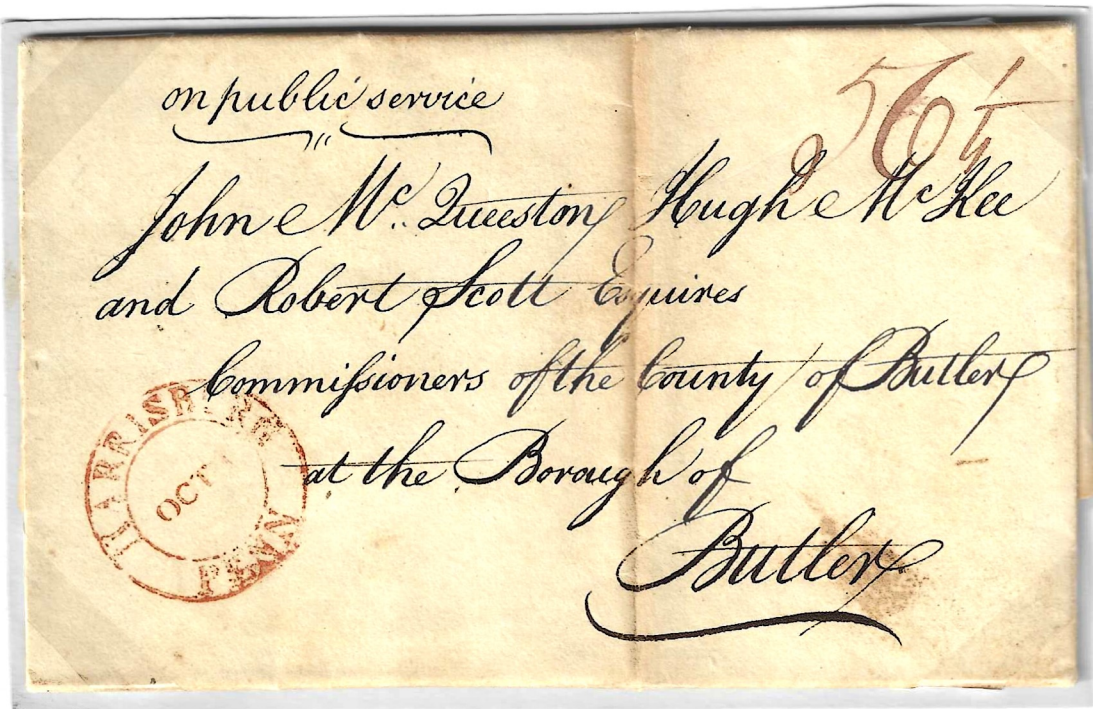 on public service
56 1/4
John Mc. Queeston Hugh McKee
and Robert Scott Esquires
Commiſsioners of the County of Butler
at the Borough of
Butler
HARRISBURG
OCT
PENN